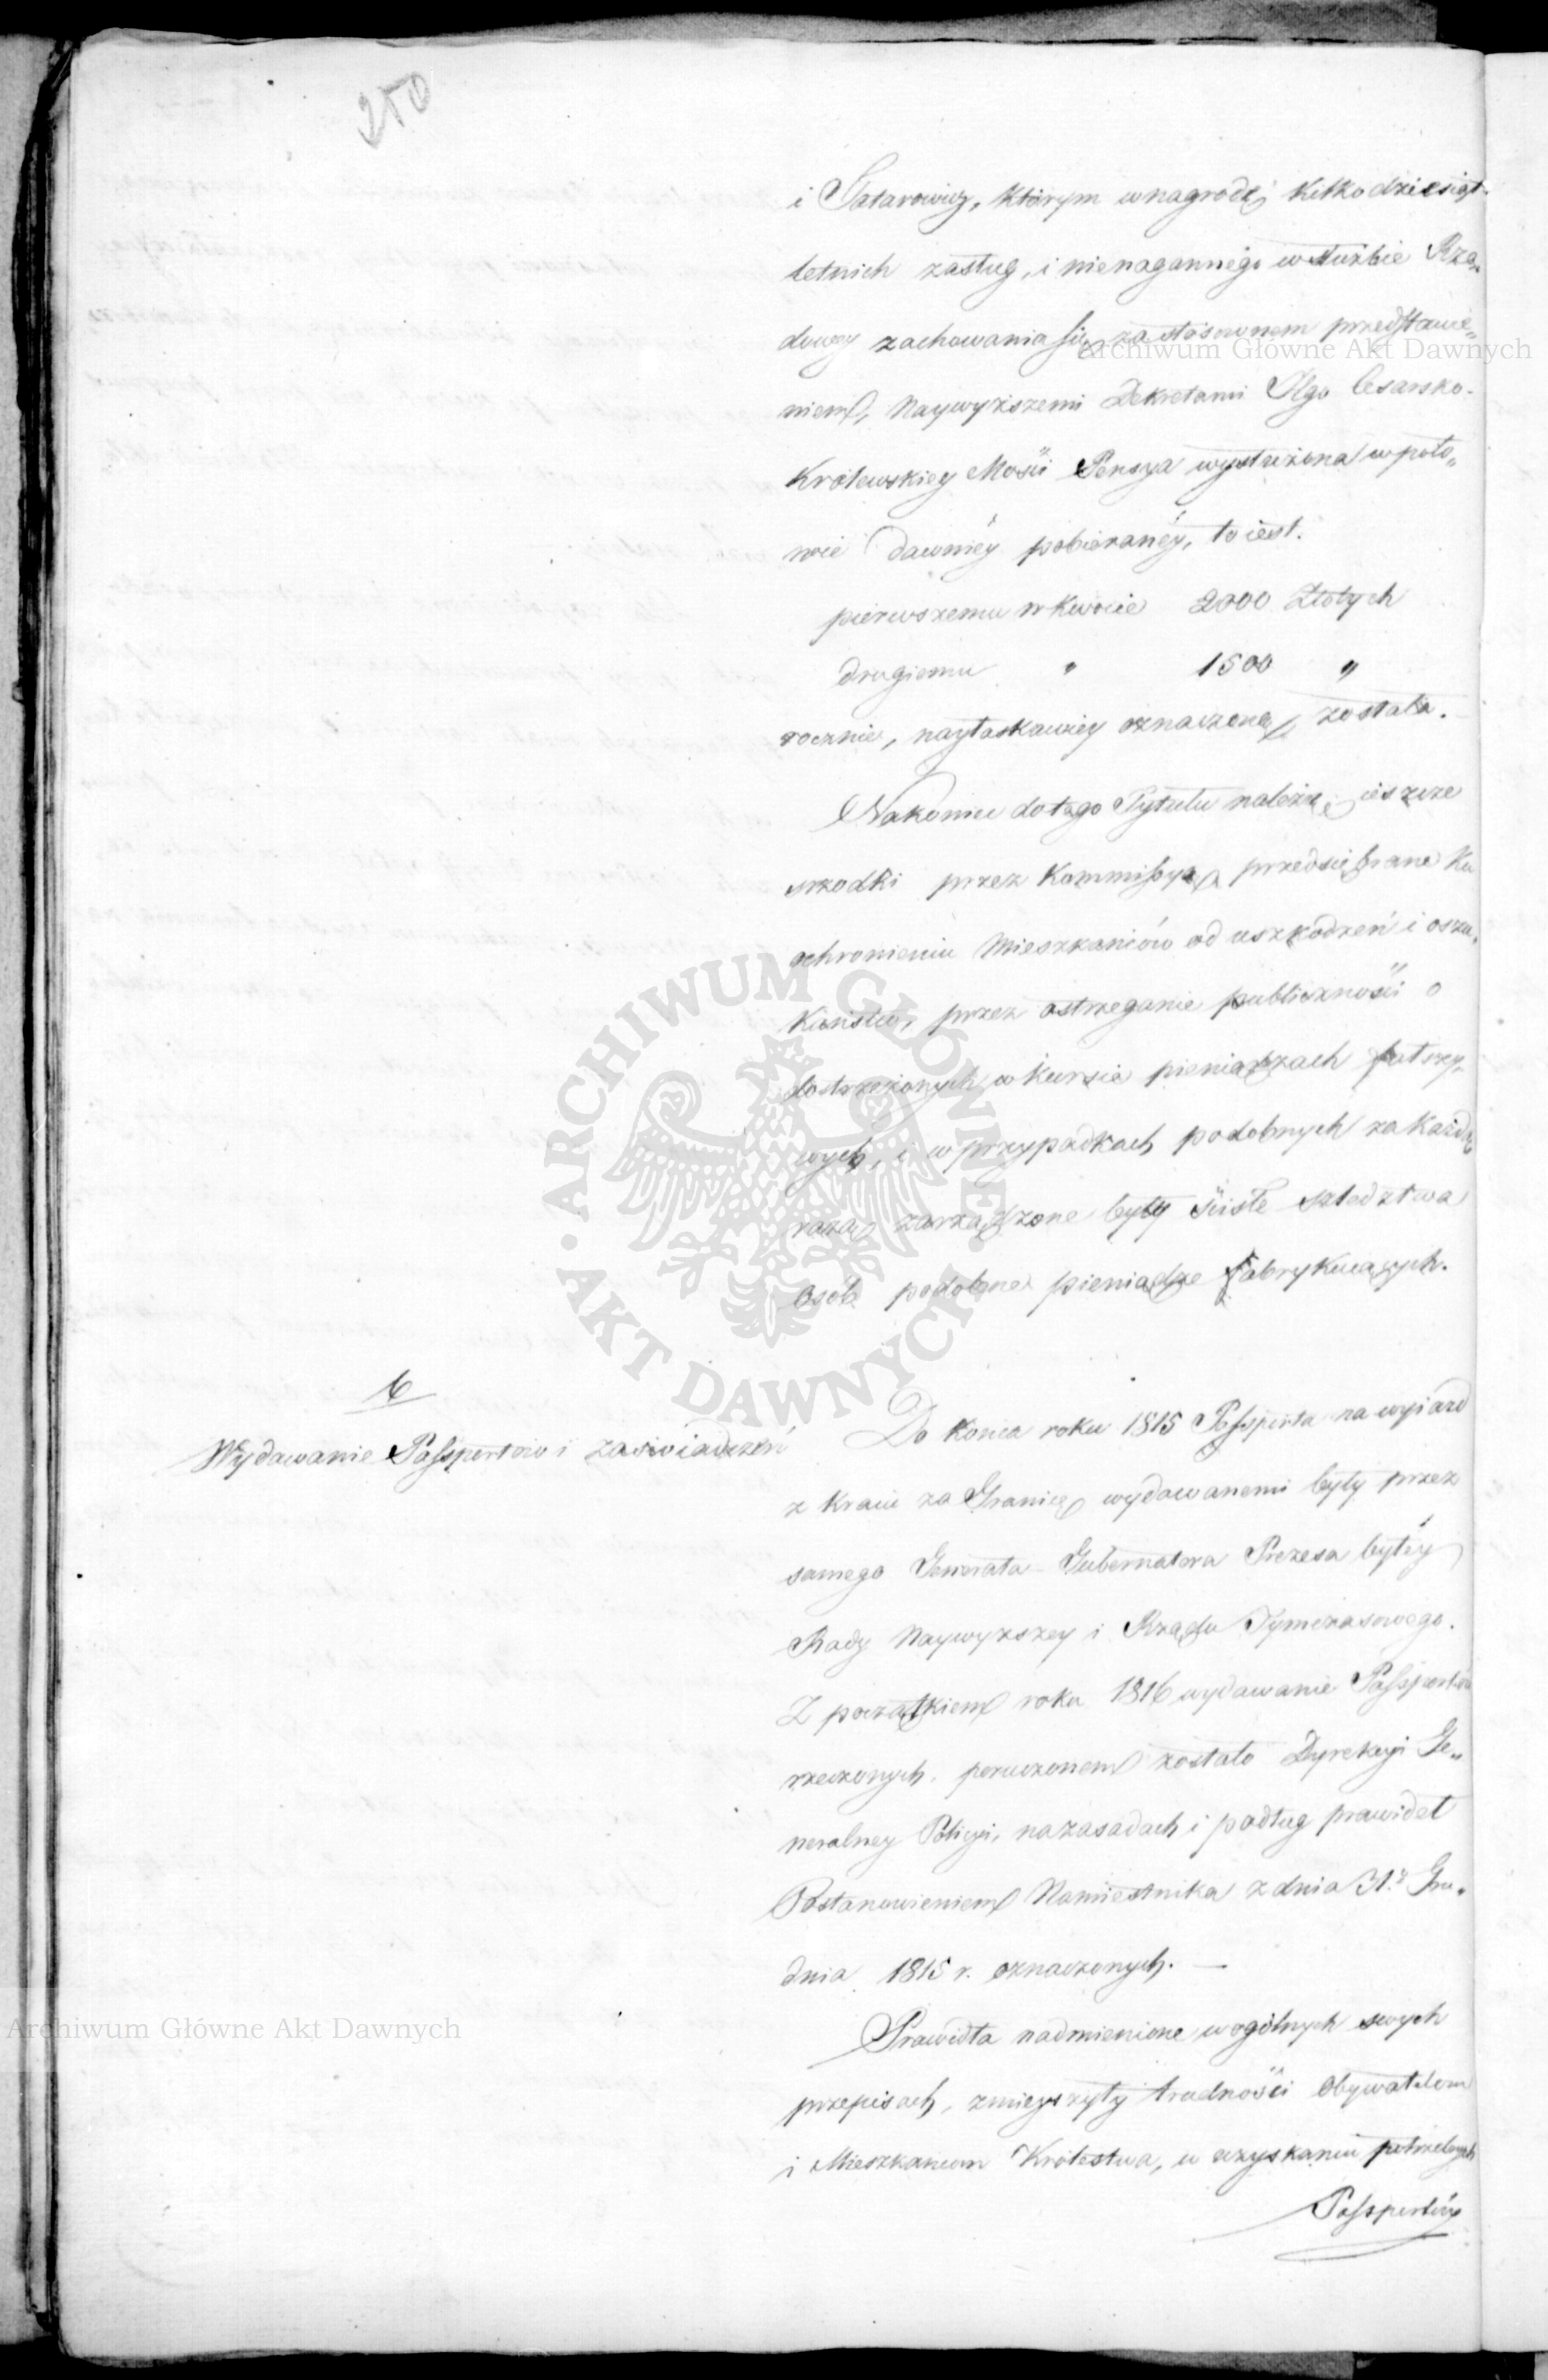 250
i Satarowicz, którym w nagrodę kilkodziesiąt-
letnich zasług, i nienagannego w służbie Rzą„
dowey zachowania się za stosownem przedstawie„
niem, Naywyższemi Dekretami Jgo Cesarsko-
Królewskiey Mości Pensya wysłużona w poło„
wie dawniéy pobieranéy, to iest.
pierwszemu w kwocie 2000 Złotych
drugiemu " 1500 "
rocznie, nayłaskawiey oznaczona została.
Nakoniec do tego Tytułu należą ieszcze
srzodki przez Kommissyą przedsiębrane ku
ochronieniu Mieszkańców od uszkodzeń i oszu„
kaństw, przez ostrzeganie publiczności o
dostrzeżonych w kursie pieniądzach fałszy„
wych, i w przypadkach podobnych za każdą
razą zarządzone były ściste szledztwa
osób podobne pieniądze fabrykuiących.
6
Wydawanie Passportów i zaświadczeń
Do końca roku 1815 Passporta na wyiazd
z kraiu za Granicę wydawanemi były przez
samego Generała-Gubernatora Prezesa byłéy
Rady Naywyższey i Rządu Tymczasowego.
Z początkiem roku 1816 wydawanie Passportów
rzeczonych, poruczonem zostało Dyrekcyi Ge„
neralney Policyi, na zasadach i podług prawideł
Postanowieniem Namiestnika z dnia 31.º Gru„
dnia 1815 r. oznaczonych. —
Prawidła nadmienione w ogólnych swych
przepisach, zmieyszyły trudności Obywatelom
i Mieszkańcom Królestwa, w uzyskaniu potrzebnych
Passportów
Archiwum Główne Akt Dawnych
Archiwum Główne Akt Dawnych
ARCHIWUM GŁÓWNE AKT DAWNYCH